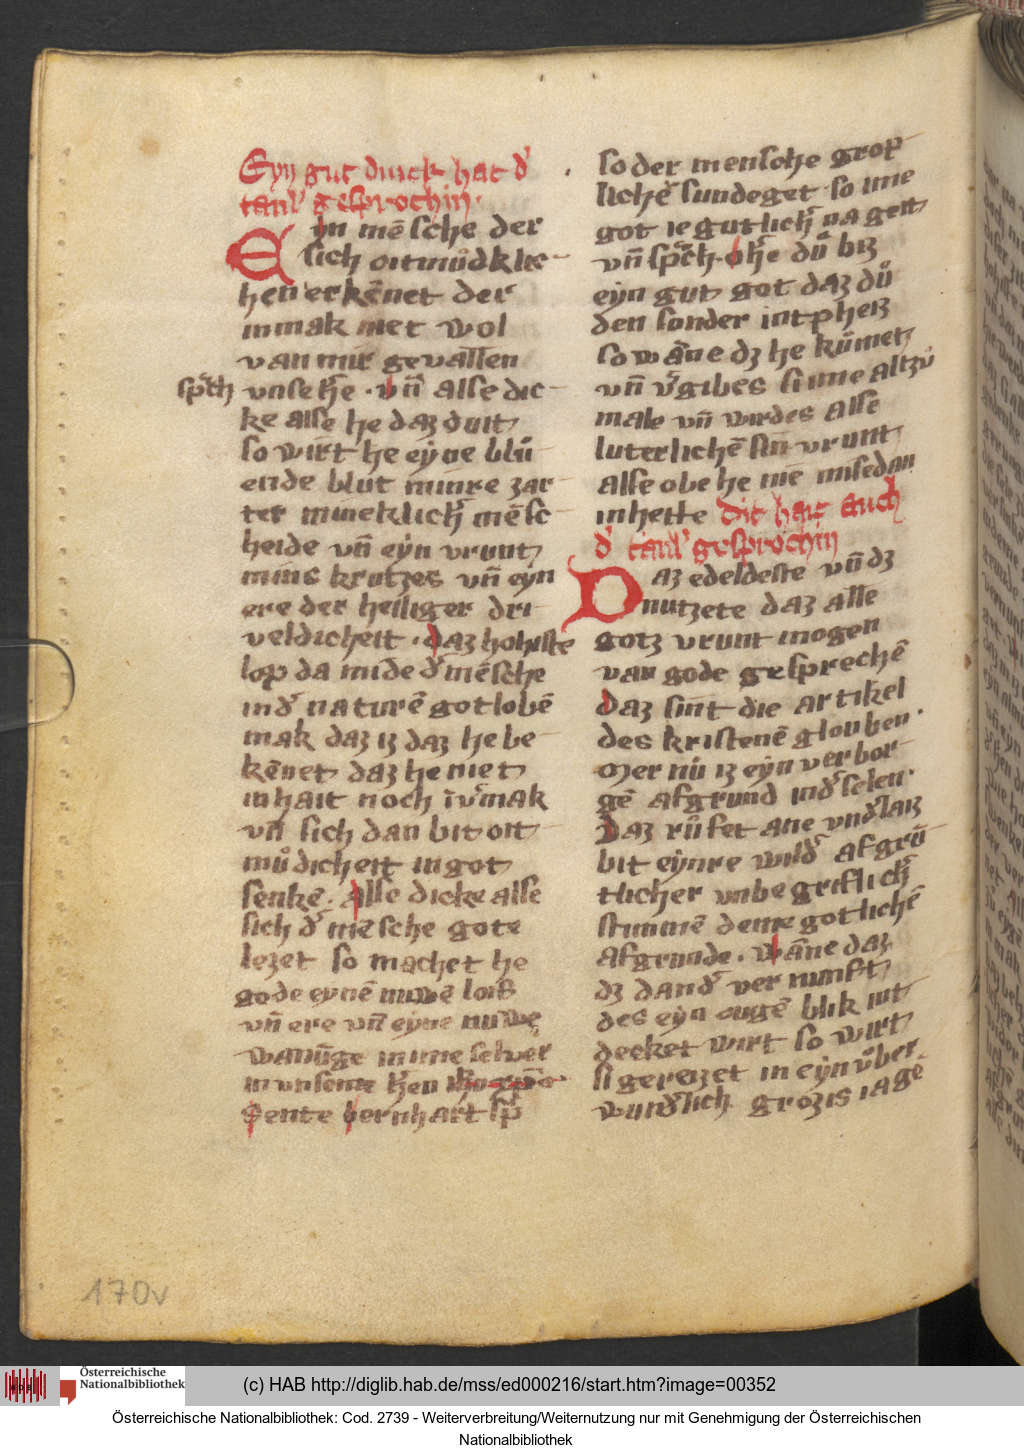 Eyn gut duick hat d'
taul' gesprochin.
Eyn mēsche der
sich oitmůdkli⸗
hen erkēnet der
inmak niet wol
van mir gevallen
sp̄ch unse h̄e . vn̄ alse dic⸗
ke alse he daz duit
so wirt he eyne blů⸗
ende blut minre zar⸗
ter mēsc⸗
heide vn̄ eyn vrunt
mins krutzes vn̄ eyn
ere der heiliger dri⸗
veldicheit . daz hohiste
lop da mide d' mēsche
in d' naturē got lobē
mak daz iz daz he be⸗
kēnet daz he niet
inhait noch ēv'mak
vn̄ sich dan bit oit⸗
můdicheit in got
senkē . Alse dicke alse
sich d' mēsche gote
lezet so machet he
gode eynē nuwē lois
vn̄ ere vn̄ eyne nuwe
wanūge in ime selver
in vnseme
Sente bernhart sp̄
so der mensche grop⸗
lichē sundeget so ime
got ie gutlich' na geit
vn̄ sp̄ch . o h̄e du biz
eyn gut got daz du
den sonder intpheis
so wāne dz he kůmet
vn̄ v'gibes sime altzů
male vn̄ wirdes alse
luterlichē sin vrunt
alse obe he nie misedan
inhette dit hait auch
d' taul' gesprochin
Daz edeldeste vn̄ dz
nutzete daz alle
gotz vrunt mogen
van gode gesprechē
daz sint die artikel
des kristenē glouben.
Mer nů iz eyn verbor⸗
gē afgrund in d' selen.
Daz růfet ane vnd'laiz
bit eynre wild' afgrů⸗
tlicher vnbegriflich'
stimmē deme gotlichē
afgrunde . Wāne daz
dz dan d' vernunft
des eyn ougē blik int⸗
decket wirt so wirt
si gereizet in eyn ůber⸗
wund'lich grozis iagē
170v
Österreichische
Nationalbibliothek
(c) HAB http://diglib.hab.de/mss/ed000216/start.htm?image=00352
Österreichische Nationalbibliothek: Cod. 2739 - Weiterverbreitung/Weiternutzung nur mit Genehmigung der Österreichischen
Nationalbibliothek